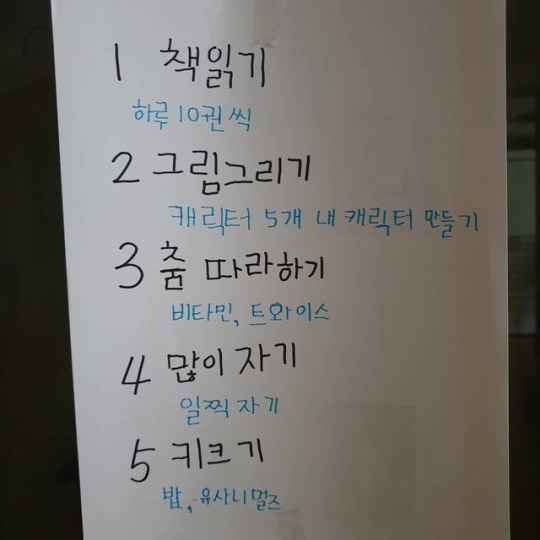 1 책읽기
하루 10권 씩
2 그림그리기
캐릭터 5개 내 캐릭터 만들기
3 춤 따라하기
비타민, 트와이스
4 많이 자기
일찍 자기
5 키크기
밥, 유사니멀즈